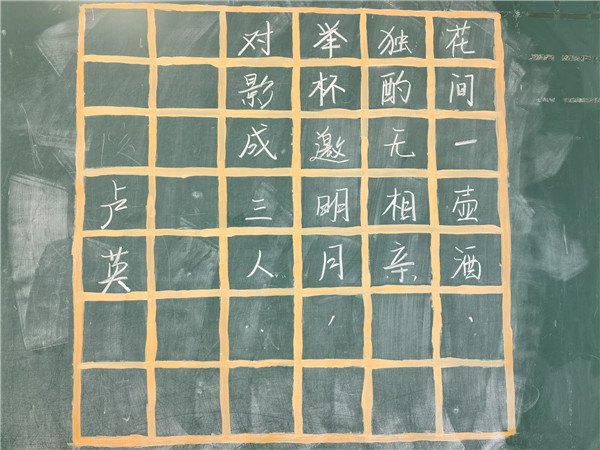 花间一壶酒、
独酌无相亲
举杯邀明月，
对影成三人.
卢英